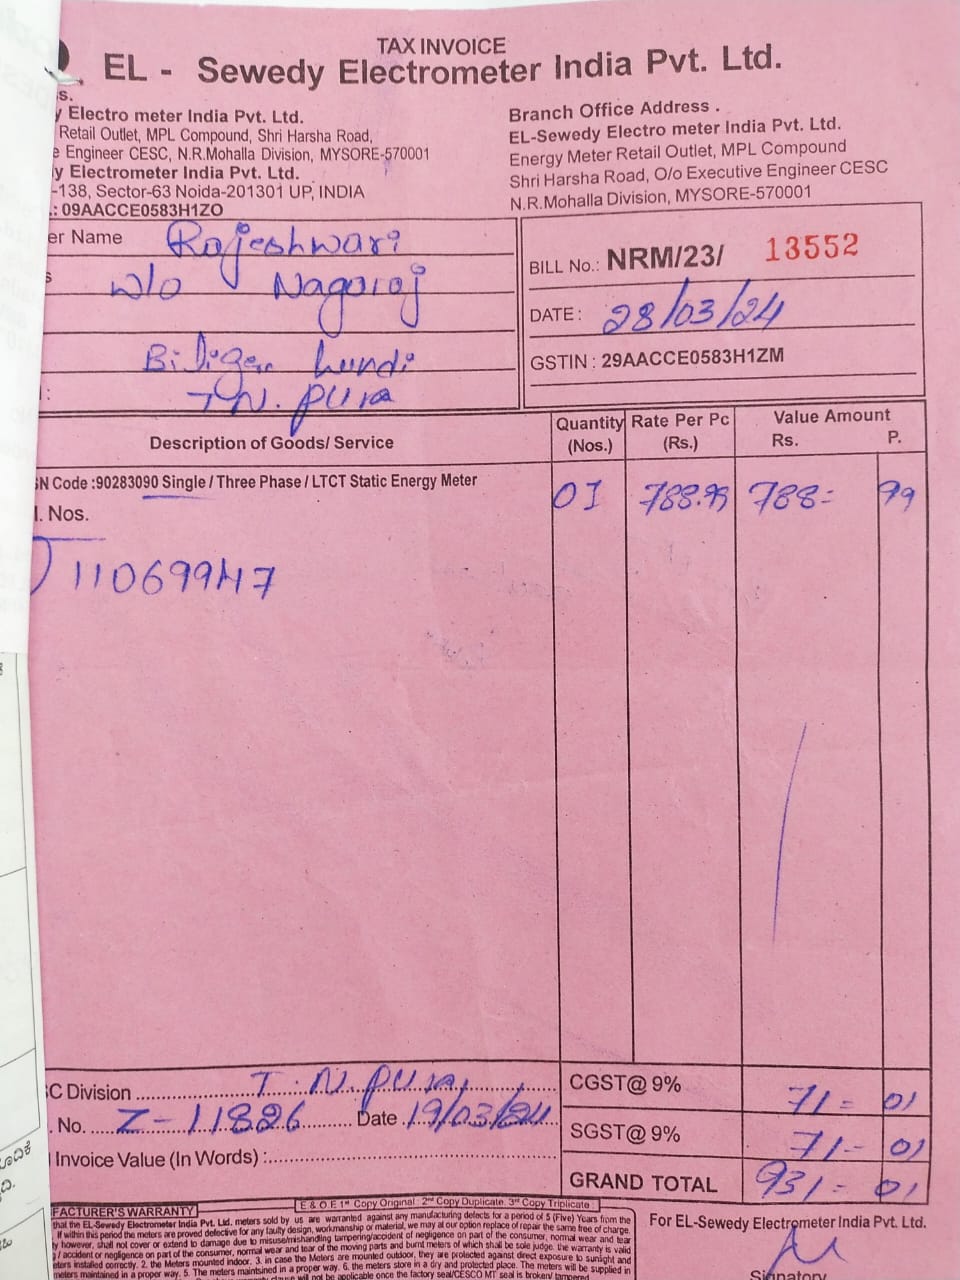 TAX INVOICE
EL - Sewedy Electrometer India Pvt. Ltd.
s.
y Electro meter India Pvt. Ltd.
Retail Outlet, MPL Compound, Shri Harsha Road,
e Engineer CESC, N.R.Mohalla Division, MYSORE-570001
y Electrometer India Pvt. Ltd.
-138, Sector-63 Noida-201301 UP, INDIA
.: 09AACCE0583H1ZO
Branch Office Address .
EL-Sewedy Electro meter India Pvt. Ltd.
Energy Meter Retail Outlet, MPL Compound
Shri Harsha Road, O/o Executive Engineer CESC
N.R.Mohalla Division, MYSORE-570001
er Name Rajeshwari
s w/o Nagaraj
hundi
: T N. Pura
BILL No.: NRM/23/ 13552
DATE : 28/03/24
GSTIN : 29AACCE0583H1ZM
Description of Goods/ Service
Quantity (Nos.)
Rate Per Pc (Rs.)
Value Amount
Rs. P.
SN Code :90283090 Single / Three Phase / LTCT Static Energy Meter
01 788.99 788= 99
l. Nos.
11069947
C Division T. N. Pura,
. No. Z-11826 Date 19/03/24
Invoice Value (In Words) :
CGST@ 9% 71= 01
SGST@ 9% 71- 01
GRAND TOTAL 931= 01
E & O.E 1st Copy Original 2nd Copy Duplicate 3rd Copy Triplicate
FACTURER'S WARRANTY
that the EL-Sewedy Electrometer India Pvt. Ltd. meters sold by us are warranted against any manufacturing defects for a period of 5 (Five) Years from the
If within this period the meters are proved defective for any faulty design, workmanship or material, we may at our option replace of repair the same free of charge.
y however, shall not cover or extend to damage due to misuse/mishandling tampering/accident of negligence on part of the consumer, normal wear and tear
/ accident or negligence on part of the consumer, normal wear and tear of the moving parts and burnt meters of which shall be sole judge. the warranty is valid
eters installed correctly. 2. the Meters mounted indoor. 3. in case the Meters are mounted outdoor, they are protected against direct exposure to sunlight and
meters maintained in a proper way. 5. The meters maintsined in a proper way. 6. the meters store in a dry and protected place. The meters will be supplied in
will not be applicable once the factory seal/CESCO MT seal is broken/ tampered
For EL-Sewedy Electrometer India Pvt. Ltd.
Signatory